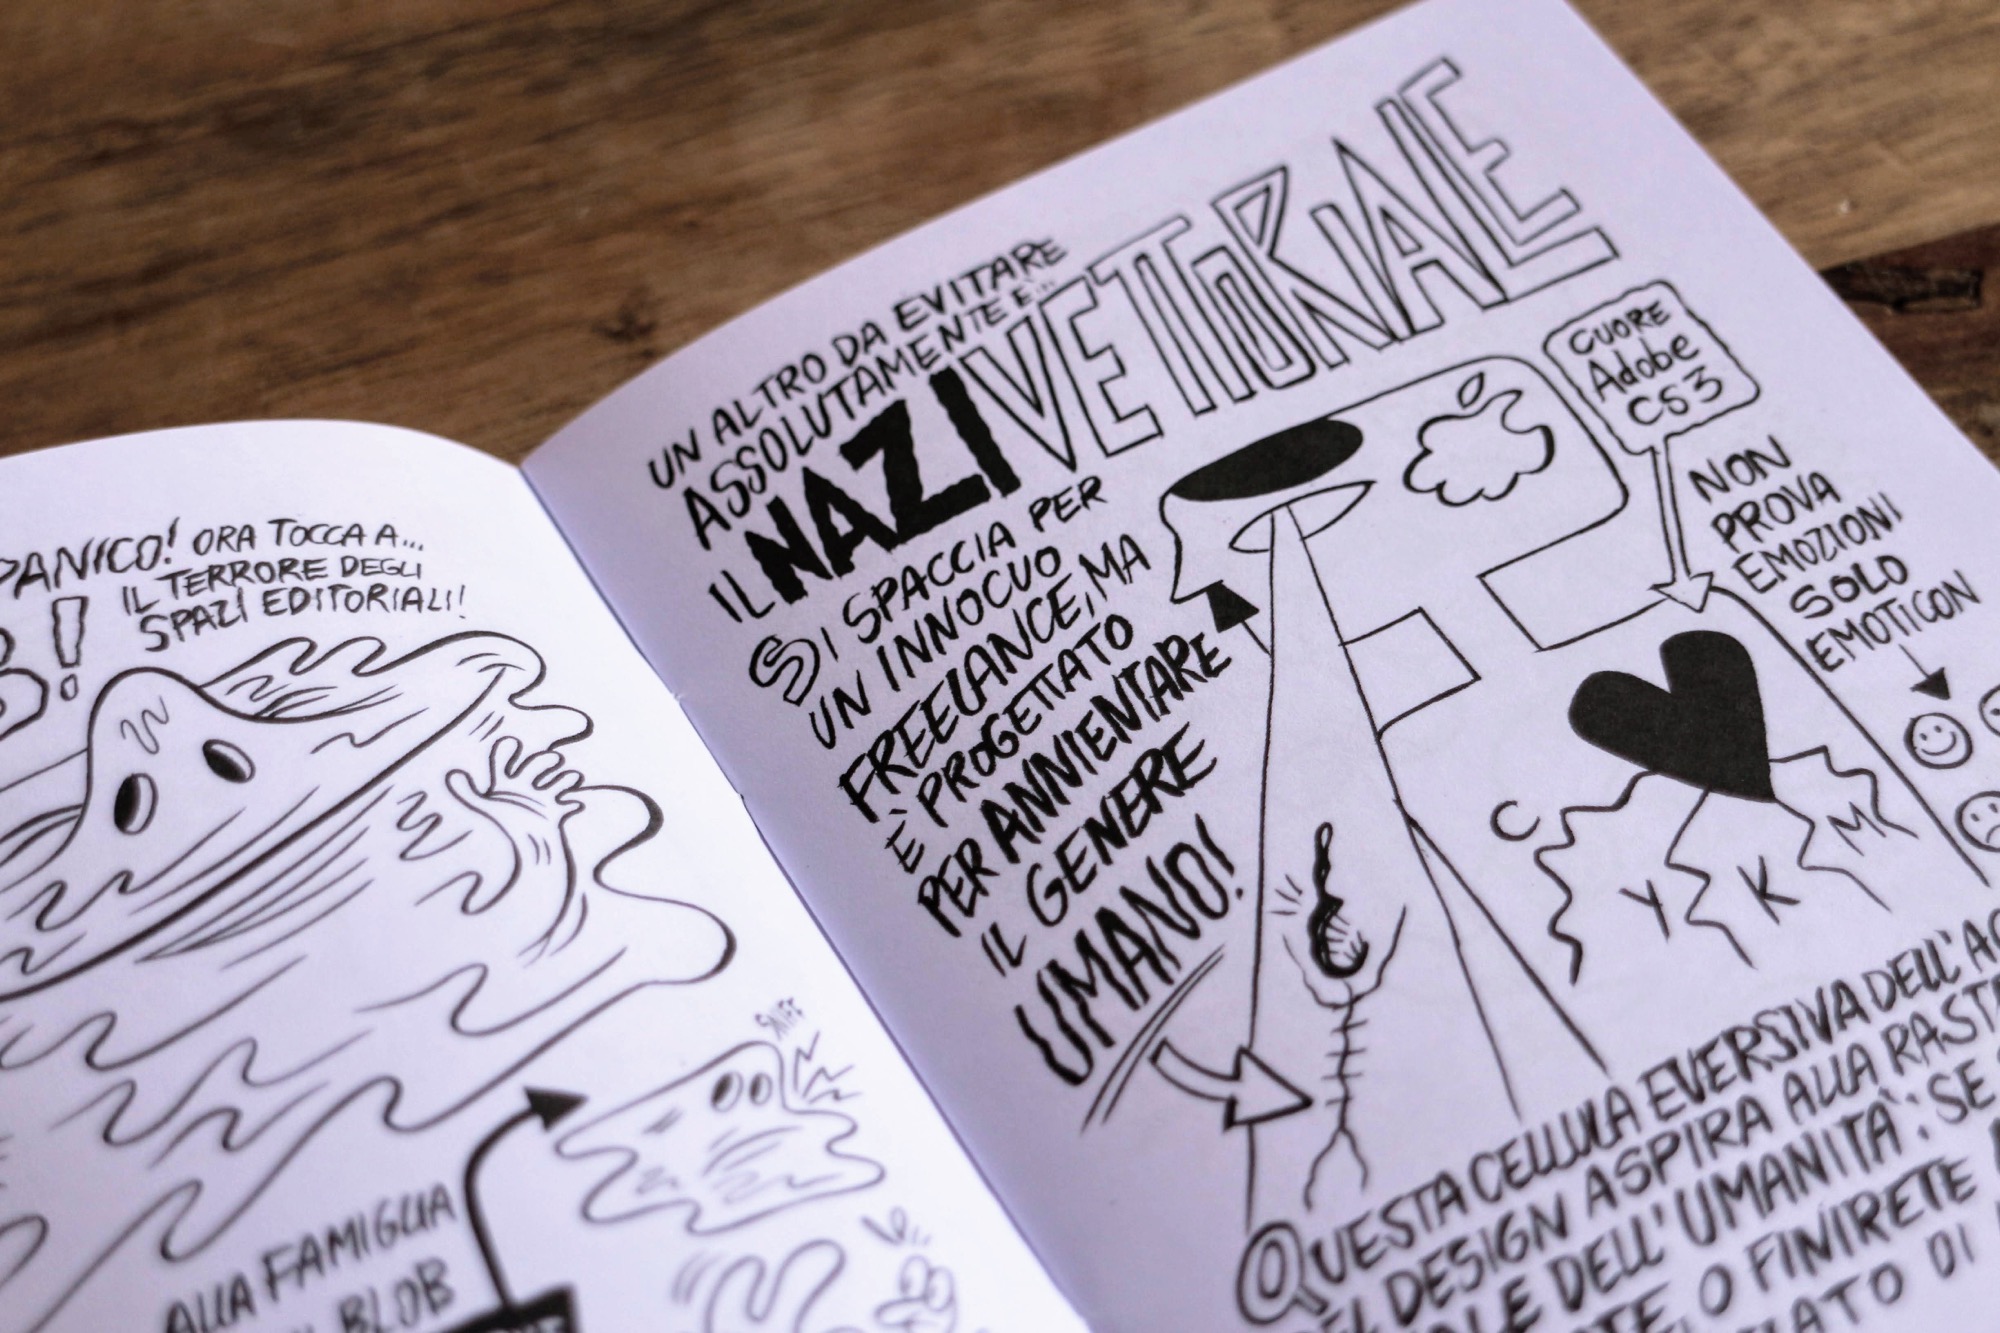 PANICO! ORA TOCCA A...
IL TERRORE DEGLI
SPAZI EDITORIALI!
SNIFF
ALLA FAMIGLIA
BLOB
UN ALTRO DA EVITARE
ASSOLUTAMENTE È...
IL NAZIVETTORIALE
SI SPACCIA PER
UN INNOCUO
FREELANCE, MA
È PROGETTATO
PER ANNIENTARE
IL GENERE
UMANO!
CUORE
Adobe
CS3
NON
PROVA
EMOZIONI
SOLO
EMOTICON
C
Y
K
M
QUESTA CELLULA EVERSIVA DELL'
DESIGN ASPIRA ALLA
DELL'UMANITÀ: SE
O FINIRETE
DI